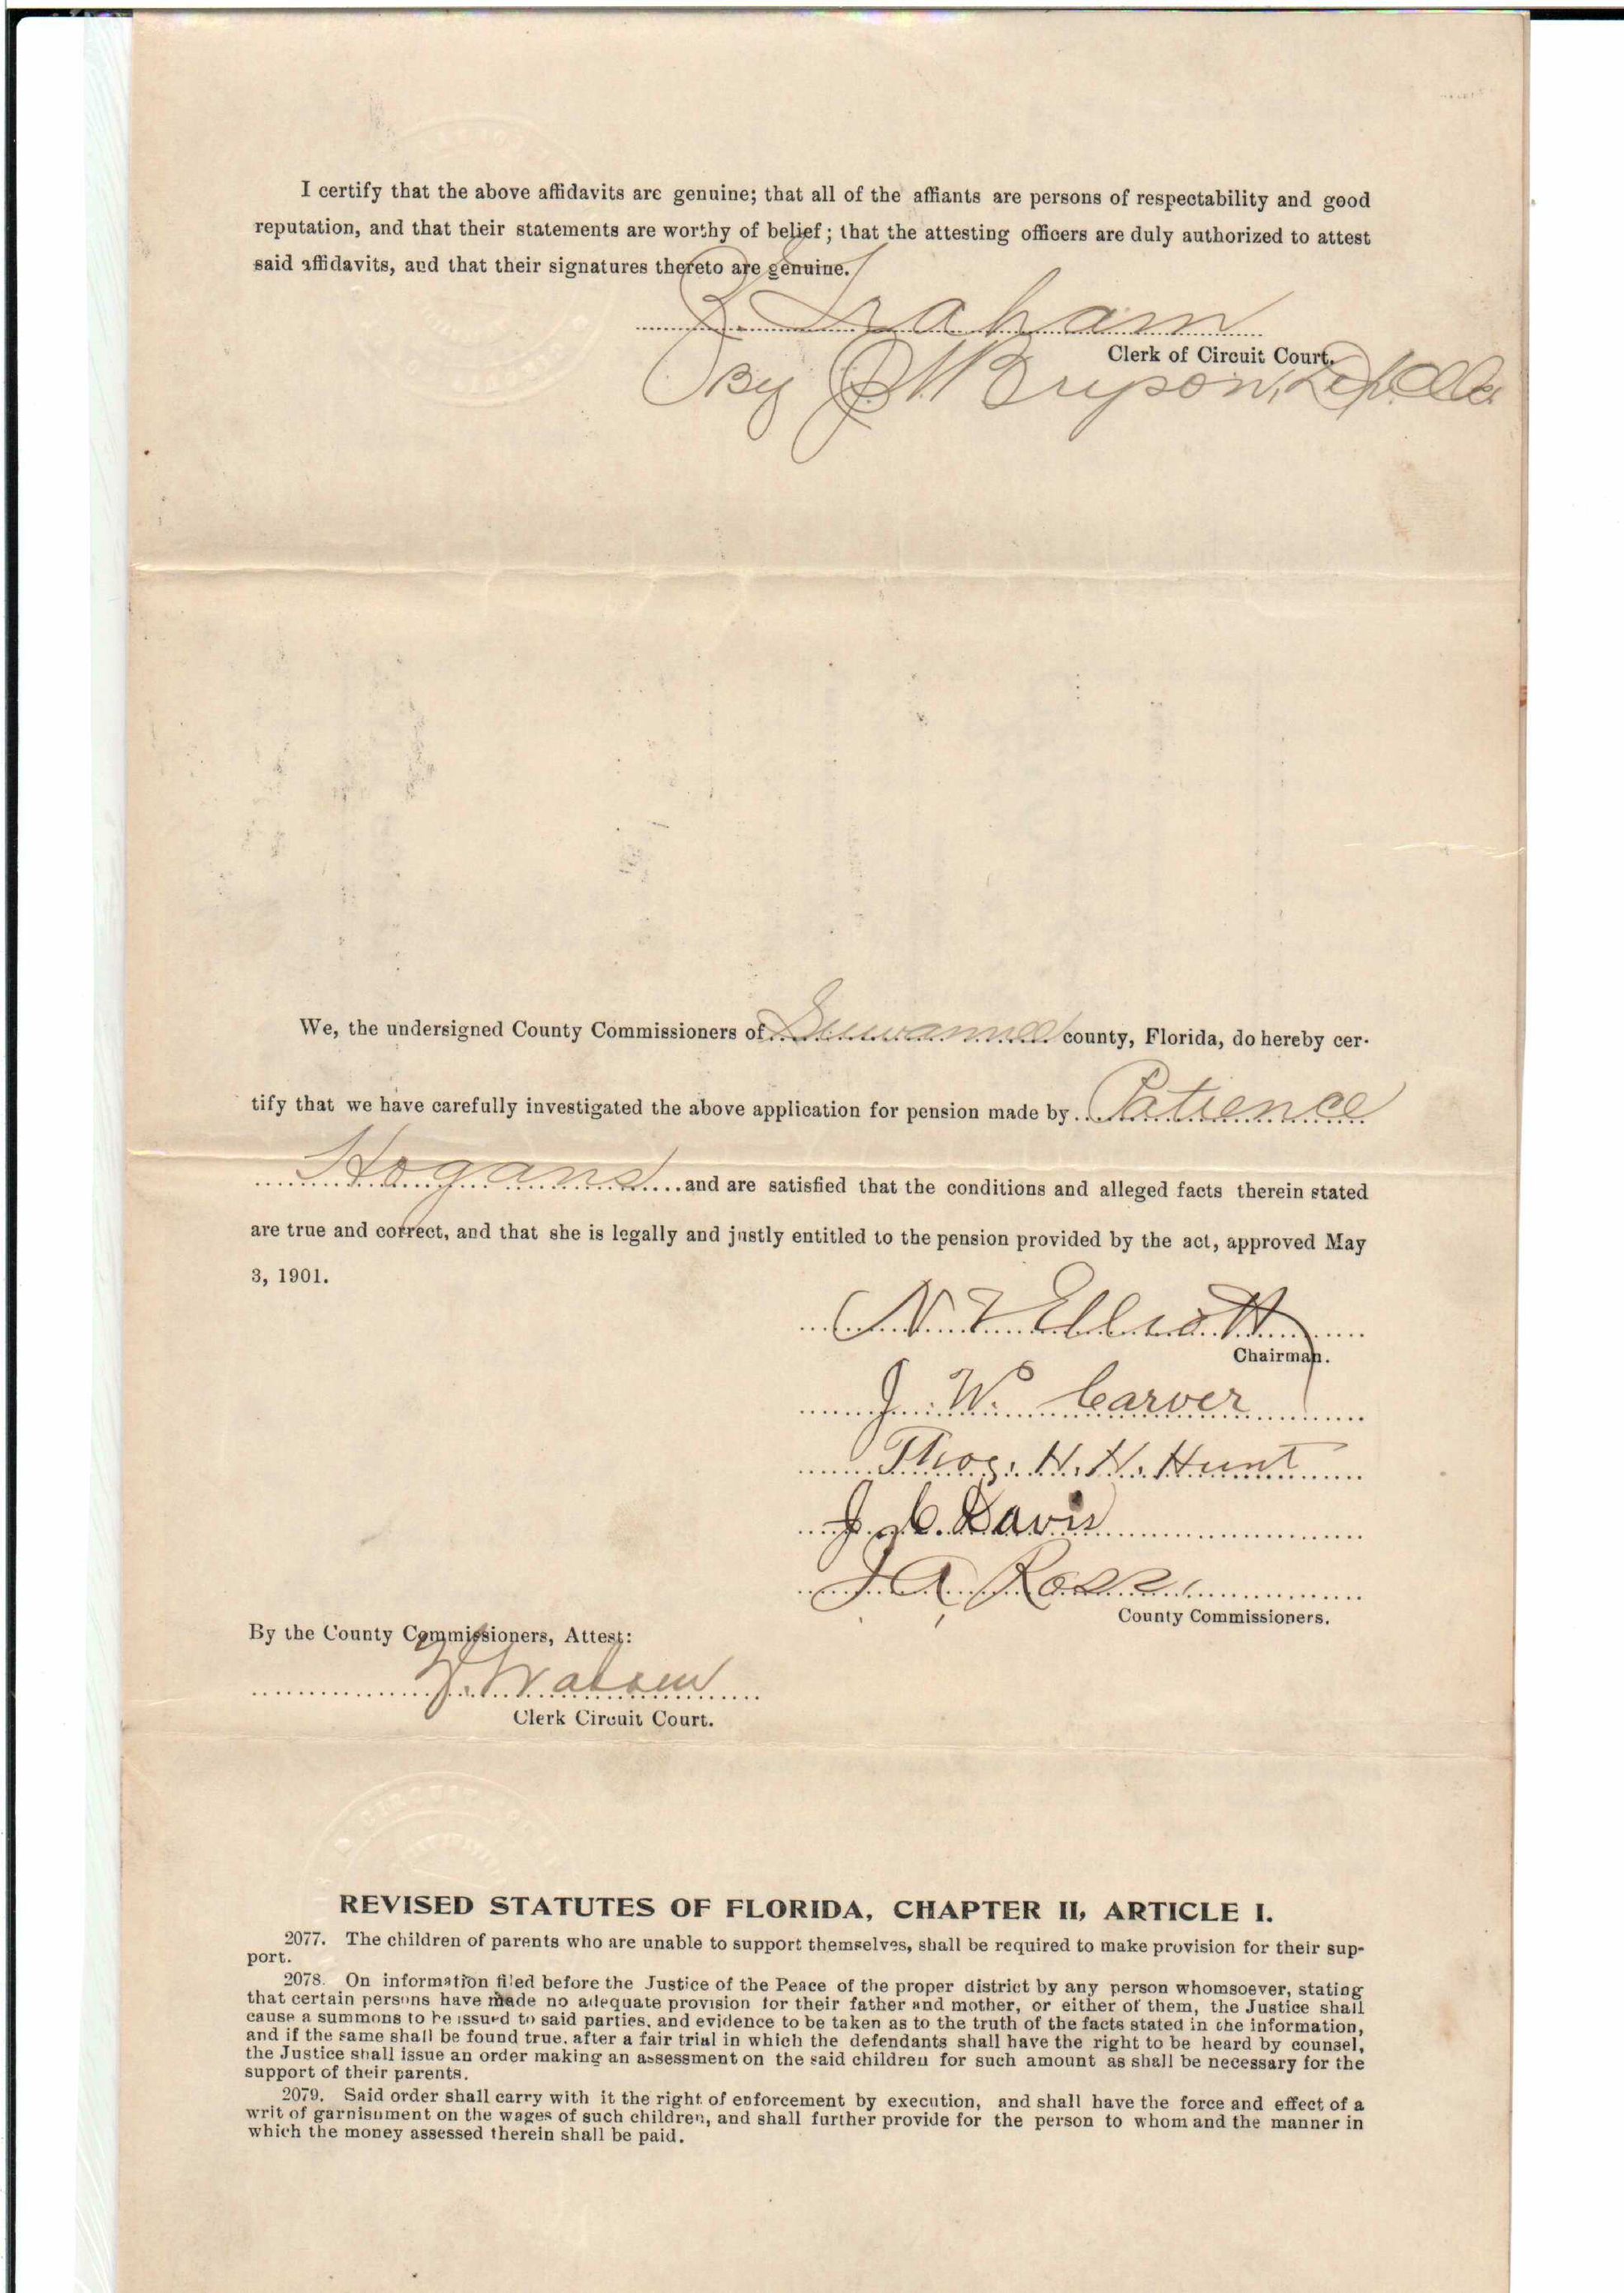 I certify that the above affidavits are genuine; that all of the affiants are persons of respectability and good
reputation, and that their statements are worthy of belief; that the attesting officers are duly authorized to attest
said affidavits, and that their signatures thereto are genuine.
Graham
Clerk of Circuit Court.
By Bryson, Dep. Clk.
We, the undersigned County Commissioners of Suwannee county, Florida, do hereby cer-
tify that we have carefully investigated the above application for pension made by Patience
Hogans and are satisfied that the conditions and alleged facts therein stated
are true and correct, and that she is legally and justly entitled to the pension provided by the act, approved May
3, 1901.
N. T. Elliott
Chairman.
J. W. Carver
Thos. H. H. Hunt
J. C. Davis
J A Ross
County Commissioners.
By the County Commissioners, Attest:
Clerk Circuit Court.
REVISED STATUTES OF FLORIDA, CHAPTER II, ARTICLE I.
2077. The children of parents who are unable to support themselves, shall be required to make provision for their sup-
port.
2078. On information filed before the Justice of the Peace of the proper district by any person whomsoever, stating
that certain persons have made no adequate provision for their father and mother, or either of them, the Justice shall
cause a summons to be issued to said parties, and evidence to be taken as to the truth of the facts stated in the information,
and if the same shall be found true, after a fair trial in which the defendants shall have the right to be heard by counsel,
the Justice shall issue an order making an assessment on the said children for such amount as shall be necessary for the
support of their parents.
2079. Said order shall carry with it the right of enforcement by execution, and shall have the force and effect of a
writ of garnishment on the wages of such children, and shall further provide for the person to whom and the manner in
which the money assessed therein shall be paid.